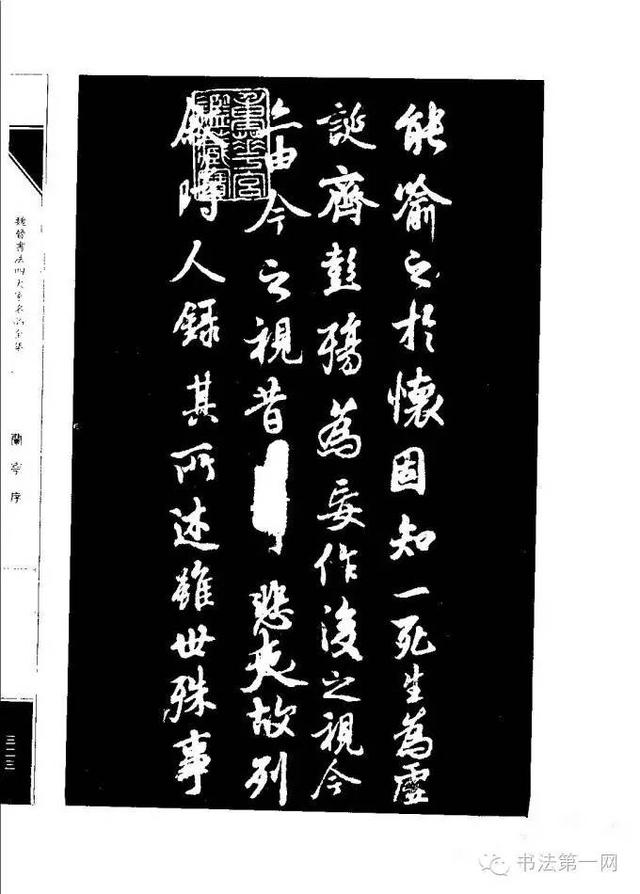 能喻之於懷固知一死生為虛
誕齊彭殤為妄作後之視今
亦由今之視昔悲夫故列
敘時人錄其所述雖世殊事
重華宮鑑藏寶
魏晉書法四大家名品全集
蘭亭序
三一三
书法第一网